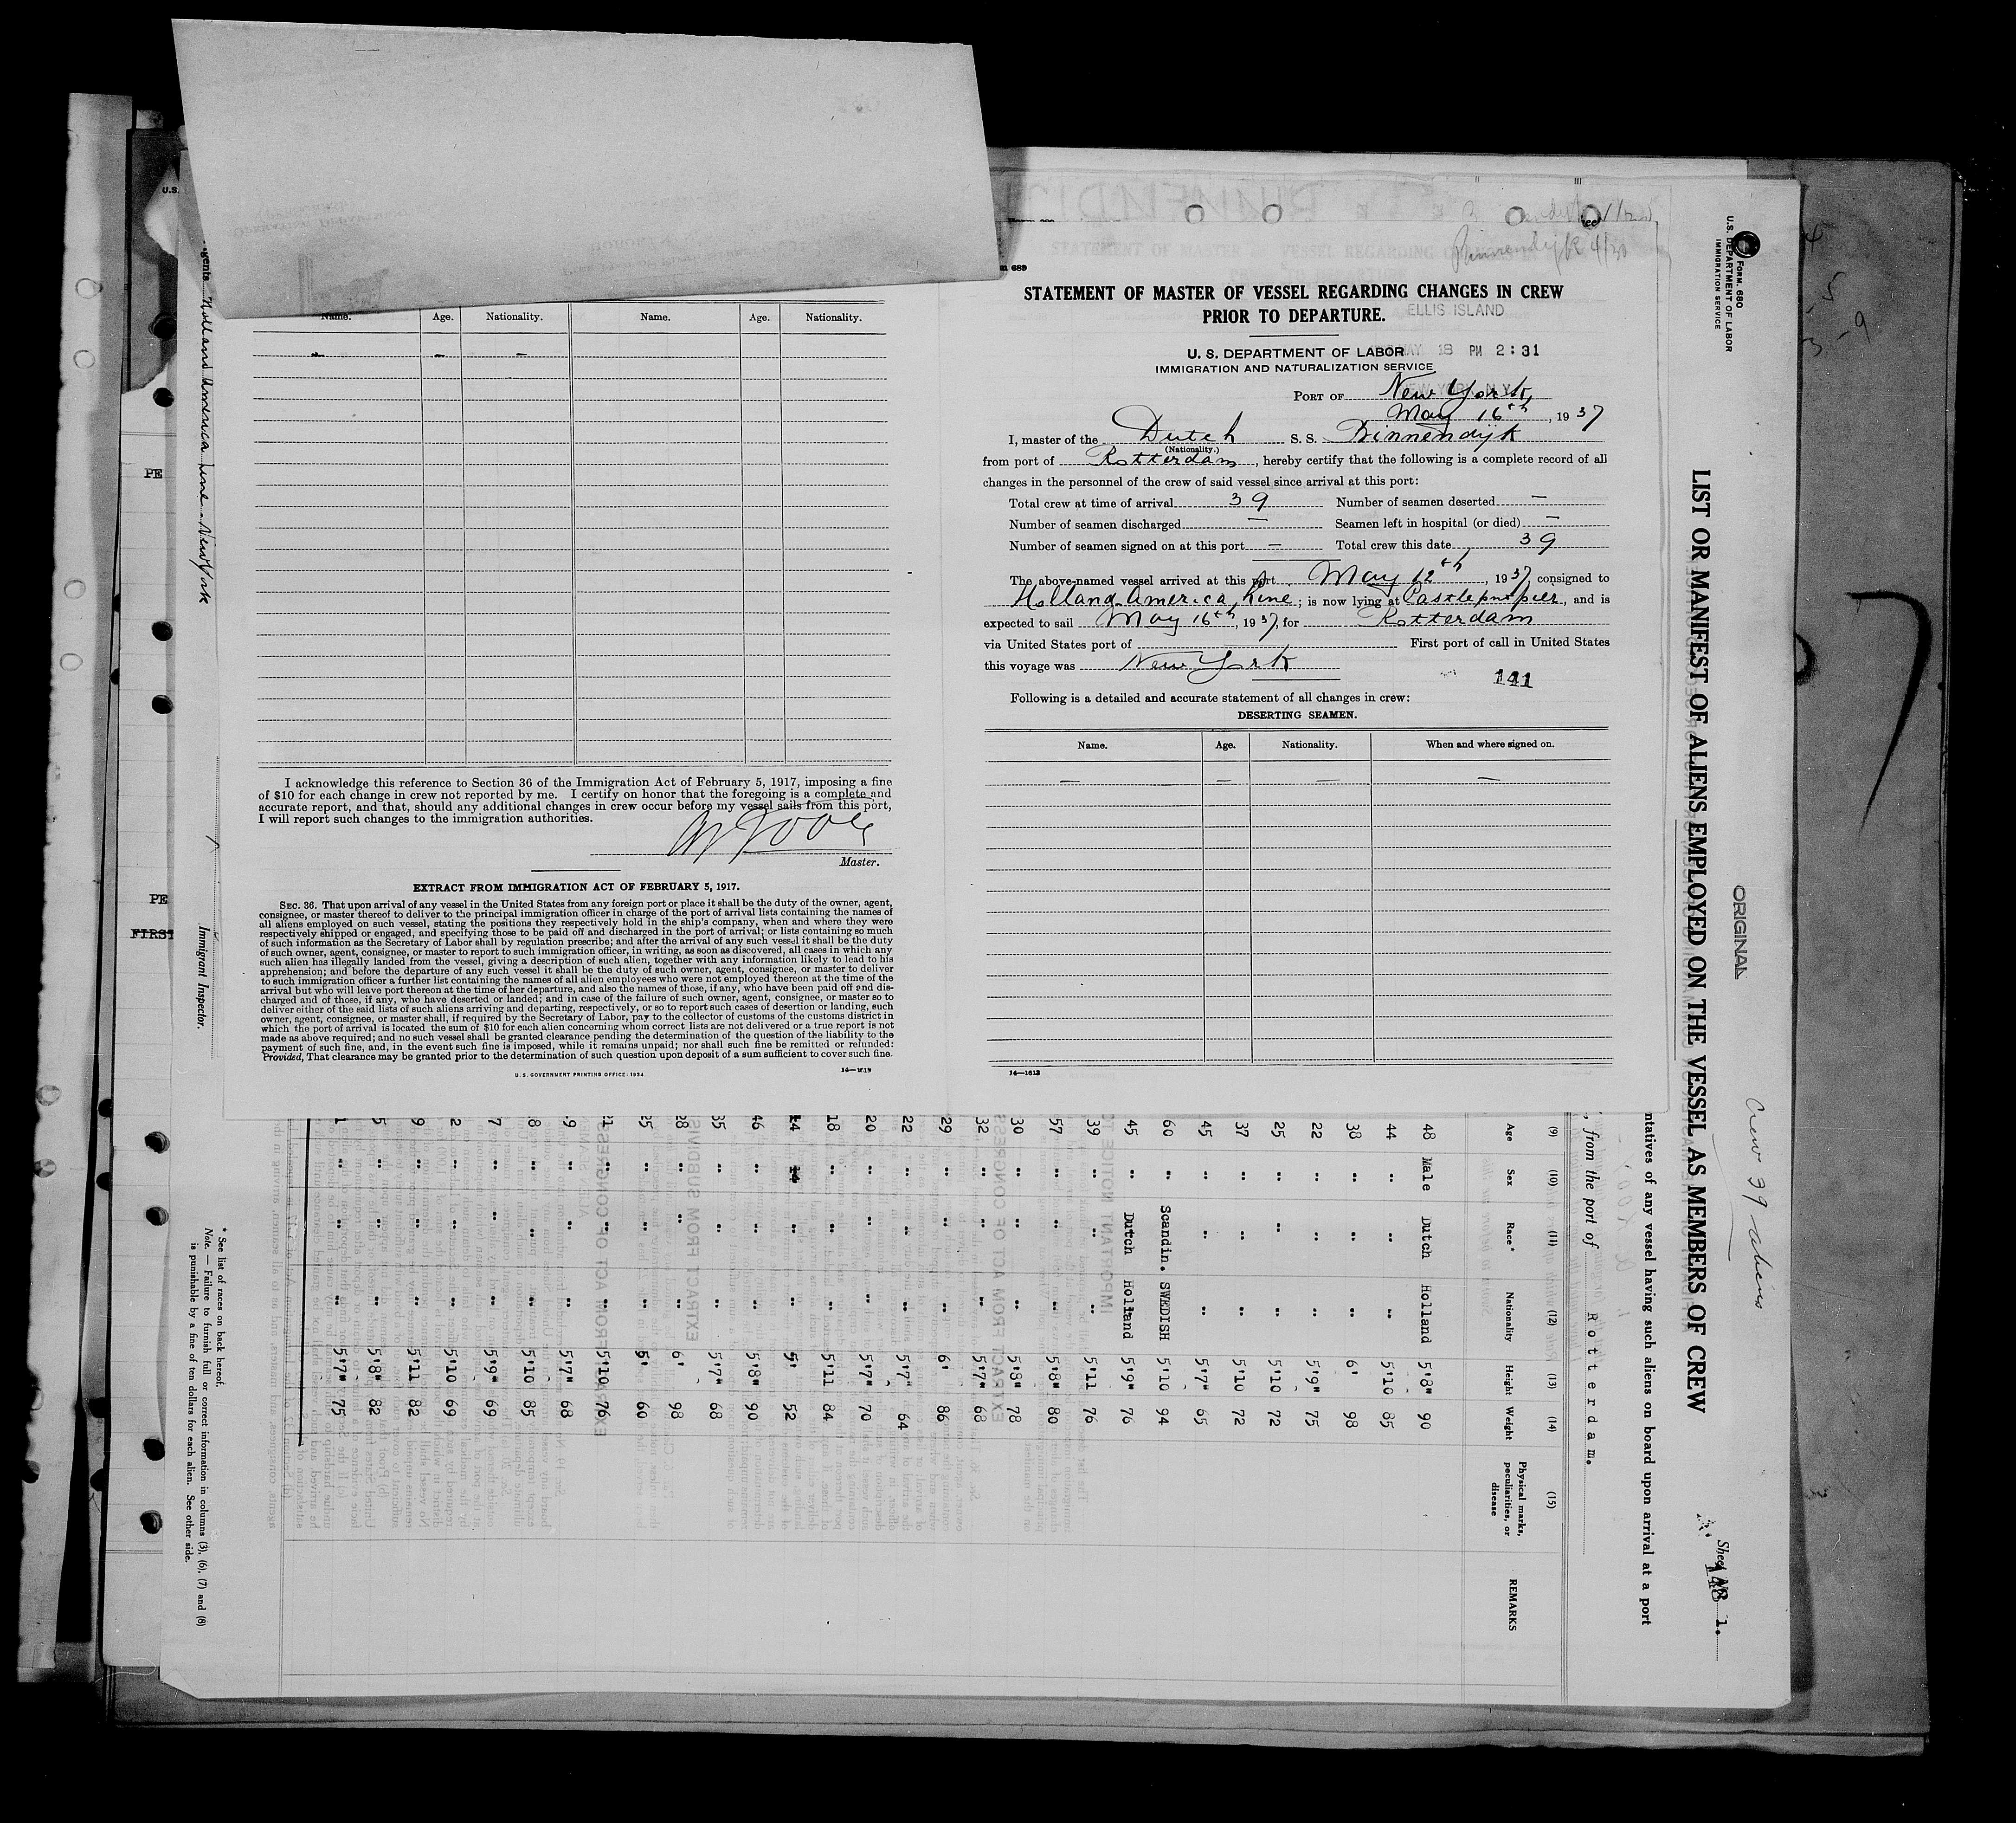 Form 689
STATEMENT OF MASTER OF VESSEL REGARDING CHANGES IN CREW
PRIOR TO DEPARTURE.
ELLIS ISLAND
U. S. DEPARTMENT OF LABOR
MAY 18 PM 2:31
IMMIGRATION AND NATURALIZATION SERVICE
PORT OF New York,
May 16th, 1937
I, master of the Dutch S. S. Binnendijk
(Nationality.)
from port of Rotterdam, hereby certify that the following is a complete record of all
changes in the personnel of the crew of said vessel since arrival at this port:
Total crew at time of arrival 39 Number of seamen deserted —
Number of seamen discharged — Seamen left in hospital (or died) —
Number of seamen signed on at this port — Total crew this date 39
The above-named vessel arrived at this port May 12th, 1937, consigned to
Holland America Line; is now lying at Castlepnt pier, and is
expected to sail May 16th, 1937, for Rotterdam
via United States port of First port of call in United States
this voyage was New York
141
Following is a detailed and accurate statement of all changes in crew:
DESERTING SEAMEN.
Name. Age. Nationality. When and where signed on.
— — — —
14—1613
Name. Age. Nationality. Name. Age. Nationality.
— — —
I acknowledge this reference to Section 36 of the Immigration Act of February 5, 1917, imposing a fine
of $10 for each change in crew not reported by me. I certify on honor that the foregoing is a complete and
accurate report, and that, should any additional changes in crew occur before my vessel sails from this port,
I will report such changes to the immigration authorities.
Master.
EXTRACT FROM IMMIGRATION ACT OF FEBRUARY 5, 1917.
SEC. 36. That upon arrival of any vessel in the United States from any foreign port or place it shall be the duty of the owner, agent,
consignee, or master thereof to deliver to the principal immigration officer in charge of the port of arrival lists containing the names of
all aliens employed on such vessel, stating the positions they respectively hold in the ship's company, when and where they were
respectively shipped or engaged, and specifying those to be paid off and discharged in the port of arrival; or lists containing so much
of such information as the Secretary of Labor shall by regulation prescribe; and after the arrival of any such vessel it shall be the duty
of such owner, agent, consignee, or master to report to such immigration officer, in writing, as soon as discovered, all cases in which any
such alien has illegally landed from the vessel, giving a description of such alien, together with any information likely to lead to his
apprehension; and before the departure of any such vessel it shall be the duty of such owner, agent, consignee, or master to deliver
to such immigration officer a further list containing the names of all alien employees who were not employed thereon at the time of the
arrival but who will leave port thereon at the time of her departure, and also the names of those, if any, who have been paid off and dis-
charged and of those, if any, who have deserted or landed; and in case of the failure of such owner, agent, consignee, or master so to
deliver either of the said lists of such aliens arriving and departing, respectively, or so to report such cases of desertion or landing, such
owner, agent, consignee, or master shall, if required by the Secretary of Labor, pay to the collector of customs of the customs district in
which the port of arrival is located the sum of $10 for each alien concerning whom correct lists are not delivered or a true report is not
made as above required; and no such vessel shall be granted clearance pending the determination of the question of the liability to the
payment of such fine, and, in the event such fine is imposed, while it remains unpaid; nor shall such fine be remitted or refunded:
Provided, That clearance may be granted prior to the determination of such question upon deposit of a sum sufficient to cover such fine.
U. S. GOVERNMENT PRINTING OFFICE: 1934
FORM. 680
U.S. DEPARTMENT OF LABOR
IMMIGRATION SERVICE
ORIGINAL
Crew 39 aliens
Sheet NR 1.
LIST OR MANIFEST OF ALIENS EMPLOYED ON THE VESSEL AS MEMBERS OF CREW
ntatives of any vessel having such aliens on board upon arrival at a port
, from the port of Rotterdam.
(9) (10) (11) (12) (13) (14) (15)
Age Sex Race* Nationality Height Weight Physical marks, peculiarities, or disease REMARKS
48 Male Dutch Holland 5'8" 90
44 " " " 5'10 85
38 " " " 6' 98
22 " " " 5'9" 75
25 " " " 5'10 72
37 " " " 5'10 72
45 " " " 5'7" 65
60 " Scandin. SWEDISH 5'10 94
45 " Dutch Holland 5'9" 76
39 " " " 5'11 76
57 " " " 5'8" 80
30 " " " 5'8" 78
32 " " " 5'7" 68
29 " " " 6' 86
22 " " " 5'7" 64
20 " " " 5'7" 70
18 " " " 5'11 84
14 " " " 5' 52
46 " " " 5'8" 90
35 " " " 5'7" 68
28 " " " 6' 98
25 " " " 5' 60
1 " " " 5'10 76
9 " " " 5'7" 68
8 " " " 5'10 85
7 " " " 5'9" 69
2 " " " 5'10 69
9 " " " 5'11 82
5 " " " 5'8" 82
1 " " " 5'7" 75
* See list of races on back hereof.
Note. — Failure to furnish full or correct information in columns (3), (6), (7) and (8)
is punishable by a fine of ten dollars for each alien. See other side.
gents Holland America Line - New York
Immigrant Inspector.
U.S.
PE
PE
FIRST